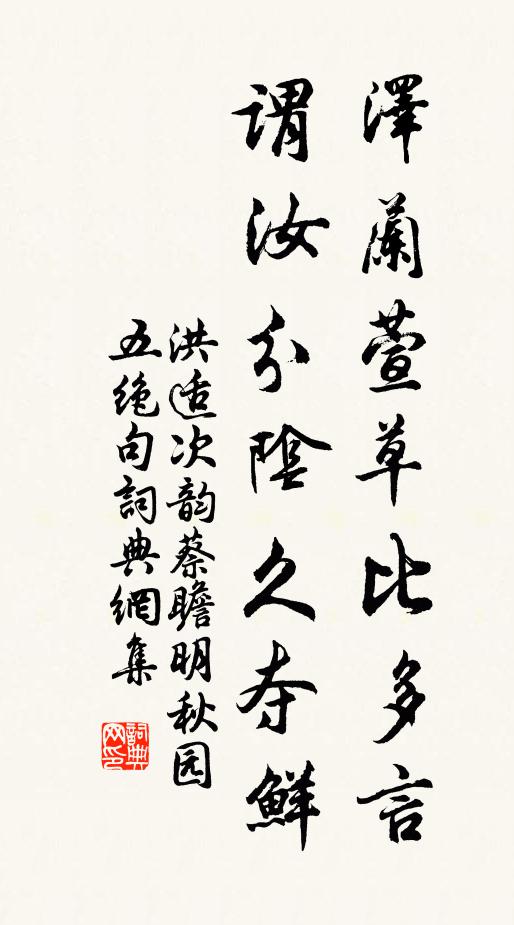 澤蘭萱草比多言
謂汝分陰久夺鮮
洪适次韵蔡瞻明秋园
五绝句詞典網集
詞典网印